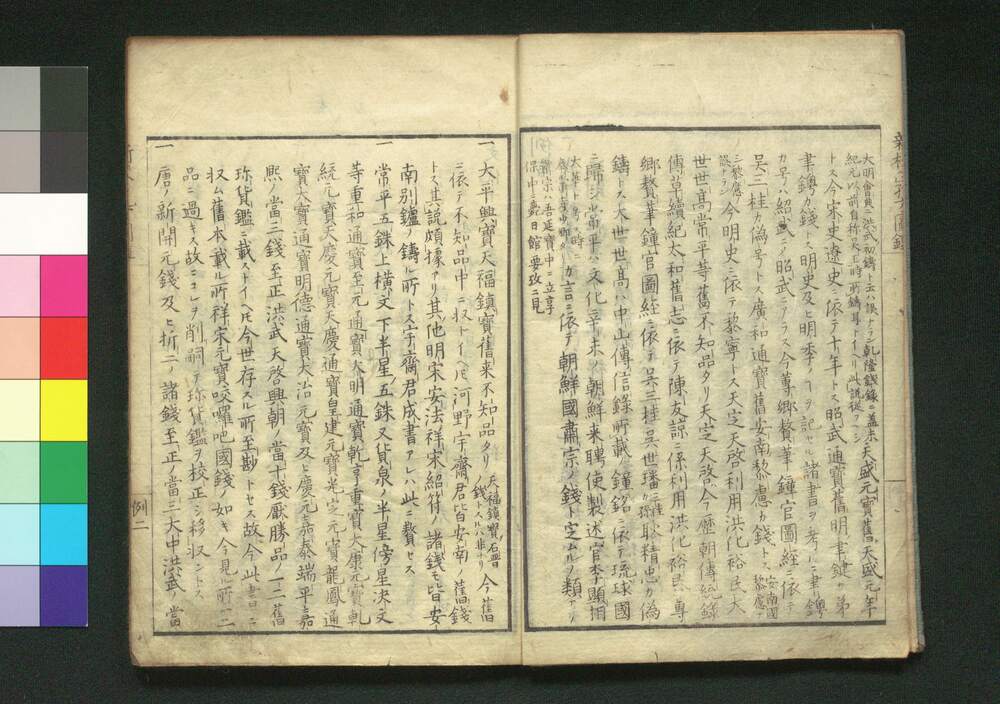 大明會典ニ洪武初鑄ト云ハ誤トラン乾隆錢錄ニ蓋未
紀元以前自称呉王時所鑄耳トイヘリ此説從フヘシ天盛元寳舊天盛元年
トス今宋史遼史ニ依テ十年トス昭武通寳舊明書鍵
書鑄カ錢トス明史及ヒ明季ノヿヲ記セル諸書ヲ考ルニ聿鍵
カ号ハ紹武ニノ昭武ニアラス今專郷贅筆鐘官圖經ニ依テ
呉三桂カ偽号トス廣和通寳舊安南黎慮カ錢トス
世世高常平等舊不知品タリ天定天啓今歴朝傳紀錄
傳草續紀太和舊志ニ依テ陳友諒ニ係利用洪化裕民ハ専
郷贅筆鐘官圖經ニ依テ呉三桂呉世璠耿精忠カ偽
鑄トス大世世高ハ中山傳信錄所載ノ鐘銘ニ依テ琉球國
ニ歸シ常平ハ文化辛未ノ朝鮮来聘使製述官李顕相
カ言ニ依テ朝鮮國肅宗ノ錢ト定ムルノ類ナリ
一大平興寳天福鎮寳舊来不知品タリ天福鎮寳石晋錢トスルハ非ナリ今舊
ニ依テ不知品中ニ収トイヘ𪜈河野宇齋君皆安南ノ舊錢
トス其説頗據アリ其他明宋安法祥宋紹符ノ諸錢モ皆安
南別鑪ノ鑄ル所トス宇齋君成書アレハ此ニ贅セス
一常平五銖上横文下半星ノ五銖又貨泉ノ半星傍星决文
等重和通寳至元通寳大明通寳乾亨重寳大康元寳乾
統元寳天慶元寳天慶通寳皇建元寳光定元寳龍鳳通
寳大寳通寳明德通寳大治元寳及ヒ慶元嘉泰端平嘉
熙ノ當二錢至正洪武天啓興朝ノ當十錢厭勝品ノ一二舊
珍貨鑑ニ載ストイヘ𪜈今世存スル所至尠トセス故今此書ニ
収ム舊本載ル所祥宋元寳咬囉吧國錢ノ如キ今見ル所一二
品ニ過キス故ニコレヲ削嗣テ珍貨鑑ヲ校正シ移収ントス
一唐ノ新開元錢及ヒ折二ノ諸錢至正ノ當三大中洪武ノ當
例二